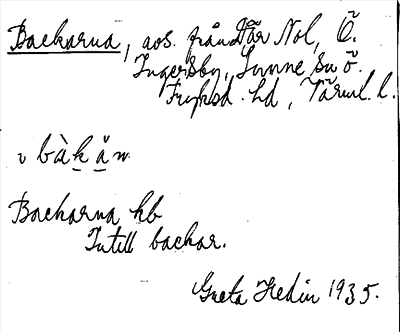 Backarna, aos. från Där Nol, Ö.
Ingersby, Sunne sn Ö.
Fryksd. hd, Värml. l.
ı bàkạ̊n
Backarna hb
Intill backar.
Greta Hedin 1935.